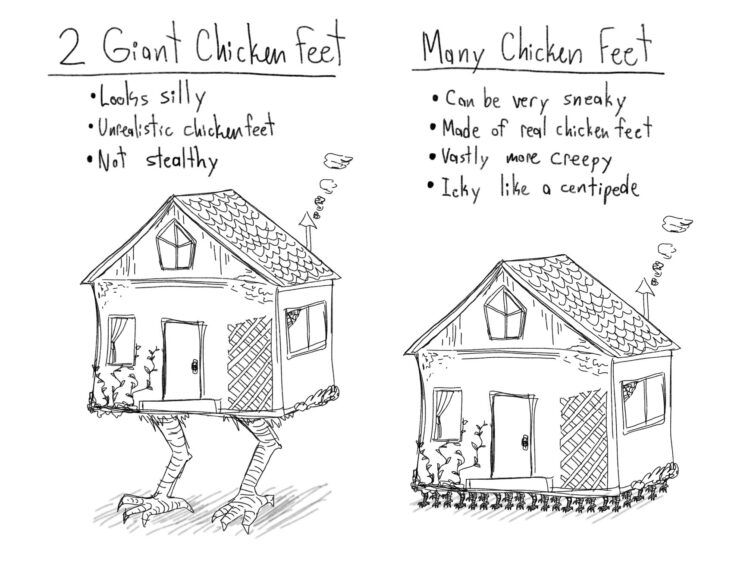 2 Giant Chicken Feet
• Looks silly
• Unrealistic chicken feet
• Not stealthy
Many Chicken Feet
• Can be very sneaky
• Made of real chicken feet
• Vastly more creepy
• Icky like a centipede